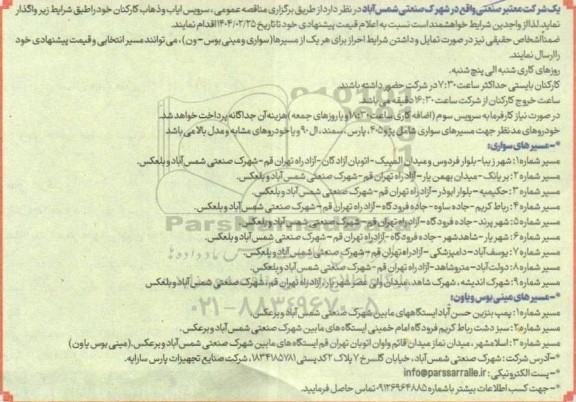 یک شرکت معتبر صنعتی واقع در شهرک صنعتی شمس آباد در نظر دارد از طریق برگزاری مناقصه عمومی، سرویس ایاب و ذهاب کارکنان خود را طبق شرایط زیر واگذار
نماید. لذا از واجدین شرایط خواهشمند است نسبت به اعلام قیمت پیشنهادی خود تا تاریخ ۱۴۰۴/۰۲/۲۵ اقدام نمایند.
ضمنا اشخاص حقیقی نیز در صورت تمایل و داشتن شرایط احراز برای هر یک از مسیرها (سواری و مینی بوس - ون)، می توانند مسیر انتخابی و قیمت پیشنهادی خود
را ارسال نمایند.
روزهای کاری شنبه الی پنج شنبه.
کارکنان بایستی حداکثر ساعت ۷:۳۰ در شرکت حضور داشته باشند.
ساعت خروج کارکنان از شرکت ساعت ۱۶:۳۰ دقیقه می باشد.
در صورت نیاز کارفرما به سرویس سوم (اضافه کاری ساعت ۱۸:۳۰ و یا روزهای جمعه) هزینه آن جداگانه پرداخت خواهد شد.
خودروهای مد نظر جهت مسیرهای سواری شامل پژو ۴۰۵، پارس، سمند، ال ۹۰ و یا خودروهای مشابه و مدل بالا می باشد
*-مسیرهای سواری:
مسیر شماره ۱: شهر زیبا - بلوار فردوس و میدان المپیک - اتوبان آزادگان - آزاد راه تهران قم - شهرک صنعتی شمس آباد و بلعکس.
مسیر شماره ۲: بریانک - میدان بهمن یار - آزاد راه تهران قم - شهرک صنعتی شمس آباد و بلعکس.
مسیر شماره ۳: حکیمیه - بلوار ابوذر - آزاد راه تهران قم - شهرک صنعتی شمس آباد و بلعکس.
مسیر شماره ۴: رباط کریم - جاده ساوه - جاده فرودگاه - آزاد راه تهران قم - شهرک صنعتی شمس آباد و بلعکس.
مسیر شماره ۵: شهر پرند - جاده فرودگاه - آزاد راه تهران قم - شهرک صنعتی شمس آباد و بلعکس.
مسیر شماره ۶: شهریار - شاهدشهر - جاده فرودگاه - آزاد راه تهران قم - شهرک صنعتی شمس آباد و بلعکس.
مسیر شماره ۷: یوسف آباد - دامپزشکی - آزاد راه تهران قم - شهرک صنعتی شمس آباد و بلعکس.
مسیر شماره ۸: دولت آباد - متروشاهد - آزاد راه تهران قم - شهرک صنعتی شمس آباد و بلعکس.
مسیر شماره ۹: شهرک اندیشه، شهرک شاهد، میدان ولی عصر شهریار، آزاد راه تهران قم، شهرک صنعتی شمس آباد و بلعکس
*-مسیرهای مینی بوس و یا ون:
مسیر شماره ۱: پمپ بنزین حسن آباد ایستگاههای مابین شهرک صنعتی شمس آباد و برعکس.
مسیر شماره ۲: سبز دشت رباط کریم فرودگاه امام خمینی ایستگاه های مابین شهرک صنعتی شمس آباد و برعکس.
مسیر شماره ۳: اسلامشهر، میدان نماز میدان قائم واوان اتوبان تهران قم ایستگاه های مابین شهرک صنعتی شمس آباد و برعکس. (مینی بوس یا ون)
*-آدرس شرکت: شهرک صنعتی شمس آباد، خیابان گلسرخ ۷ پلاک ۲ کدپستی ۱۸۳۴۱۸۵۷۸۱، شرکت صنایع تجهیزات پارس سارایه.
*-پست الکترونیکی: info@parssarralle.ir
*-جهت کسب اطلاعات بیشتر با شماره ۰۹۱۲۶۹۶۴۸۸۵ تماس حاصل فرمایید.
۰۲۱-۸۸۳۴۹۶۷۰-۵